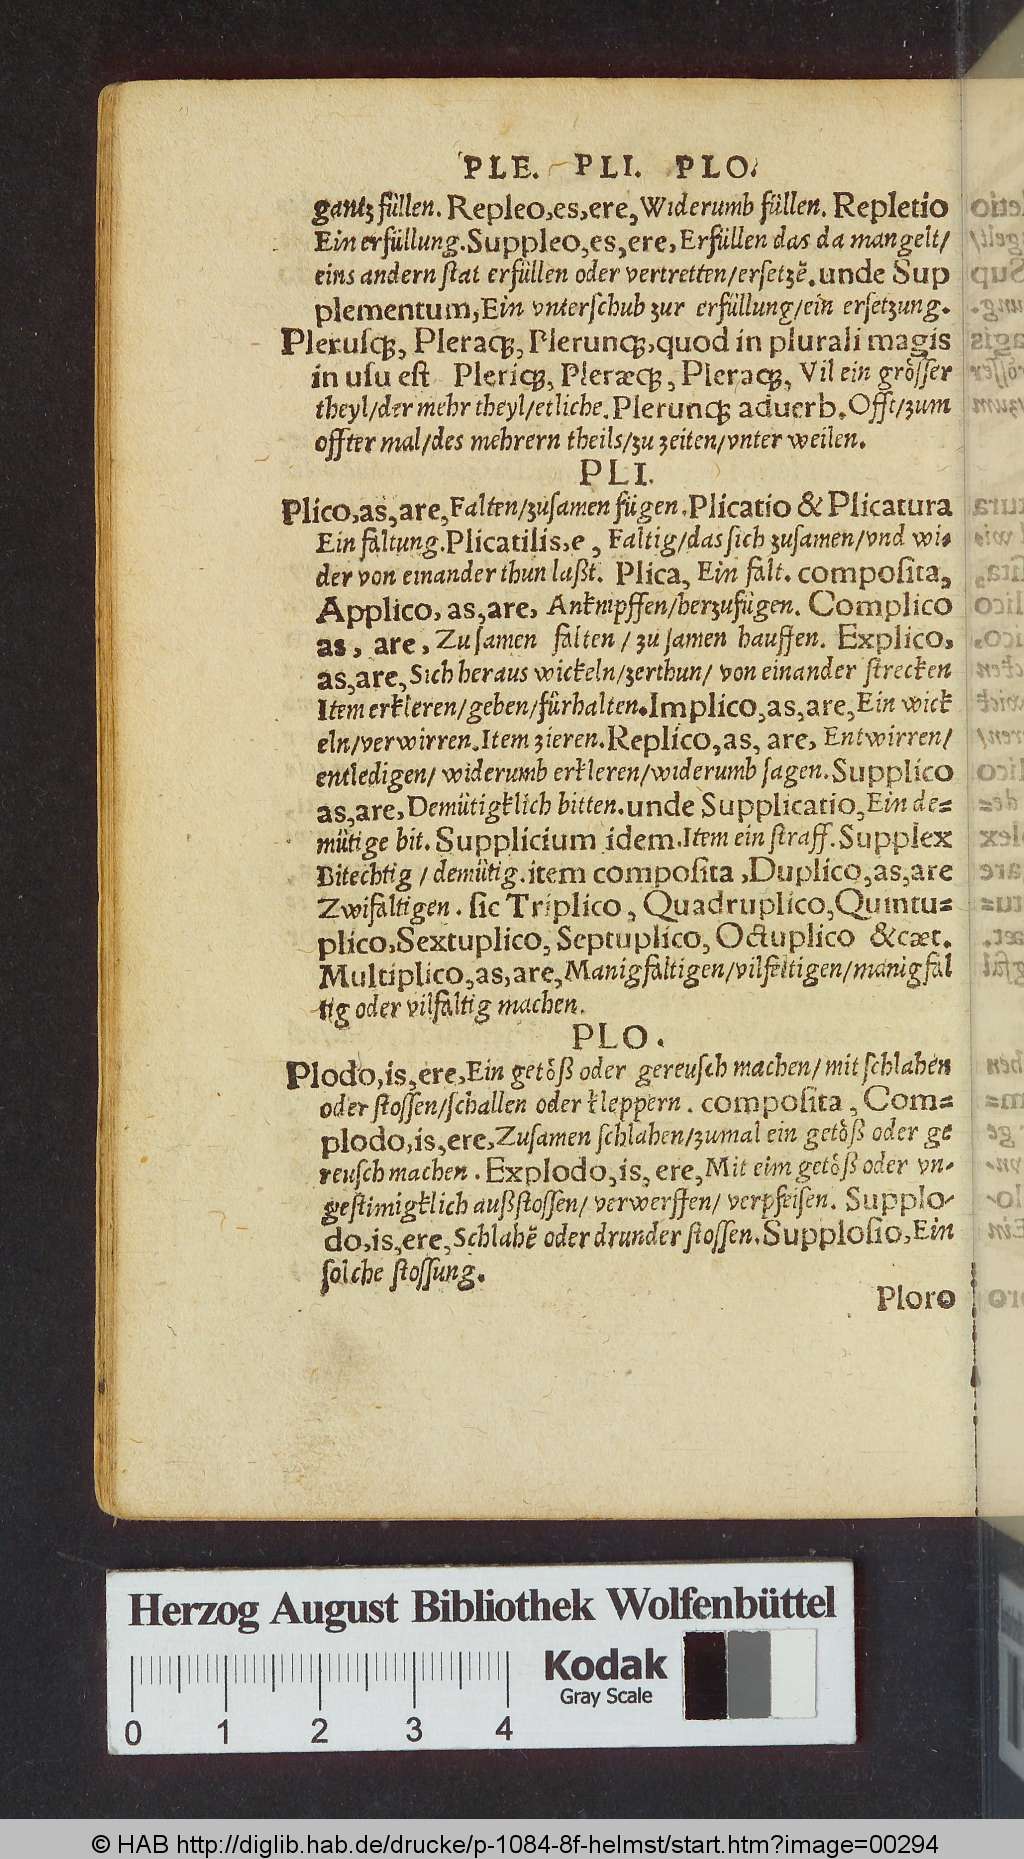 PLE. PLI. PLO.
gantz füllen. Repleo, es, ere, Widerumb füllen. Repletio
Ein erfüllung. Suppleo, es, ere, Erfüllen das da mangelt/
eins andern stat erfüllen oder vertretten/ersetzẽ. unde Sup
plementum, Ein vnterschub zur erfüllung/ein ersetzung.
Plerusq;, Pleraq;, Plerunq;, quod in plurali magis
in usu est Pleriq;, Pleræq;, Pleraq;, Vil ein grösser
theyl/der mehr theyl/etliche. Plerunq; aduerb. Offt/zum
offter mal/des mehrern theils/zu zeiten/vnter weilen.
PLI.
Plico, as, are, Falten/zusamen fügen. Plicatio & Plicatura
Ein faltung. Plicatilis, e, Faltig/das sich zusamen/vnd wi-
der von einander thun laßt. Plica, Ein falt. composita,
Applico, as, are, Anknipffen/herzufügen. Complico
as, are, Zusamen falten/zu samen hauffen. Explico,
as, are, Sich heraus wickeln/zerthun/von einander strecken
Item erkleren/geben/fürhalten. Implico, as, are, Ein wick
eln/verwirren. Item zieren. Replico, as, are, Entwirren/
entledigen/widerumb erkleren/widerumb sagen. Supplico
as, are, Demütigklich bitten. unde Supplicatio, Ein de=
mütige bit. Supplicium idem. Item ein straff. Supplex
Bitechtig/demütig. item composita, Duplico, as, are
Zwifaltigen. sic Triplico, Quadruplico, Quintu=
plico, Sextuplico, Septuplico, Octuplico &cæt.
Multiplico, as, are, Manigfaltigen/vilfeltigen/manigfal
tig oder vilfaltig machen.
PLO.
Plodo, is, ere, Ein getöß oder gereusch machen/mit schlahen
oder stossen/schallen oder kleppern. composita, Com=
plodo, is, ere, Zusamen schlahen/zumal ein getöß oder ge
reusch machen. Explodo, is, ere, Mit eim getöß oder vn-
gestimigklich außstossen/verwerffen/verpfeisen. Supplo-
do, is, ere, Schlahẽ oder drunder stossen. Supplosio, Ein
solche stossung.
Ploro
Herzog August Bibliothek Wolfenbüttel
Kodak
Gray Scale
0 1 2 3 4
© HAB http://diglib.hab.de/drucke/p-1084-8f-helmst/start.htm?image=00294